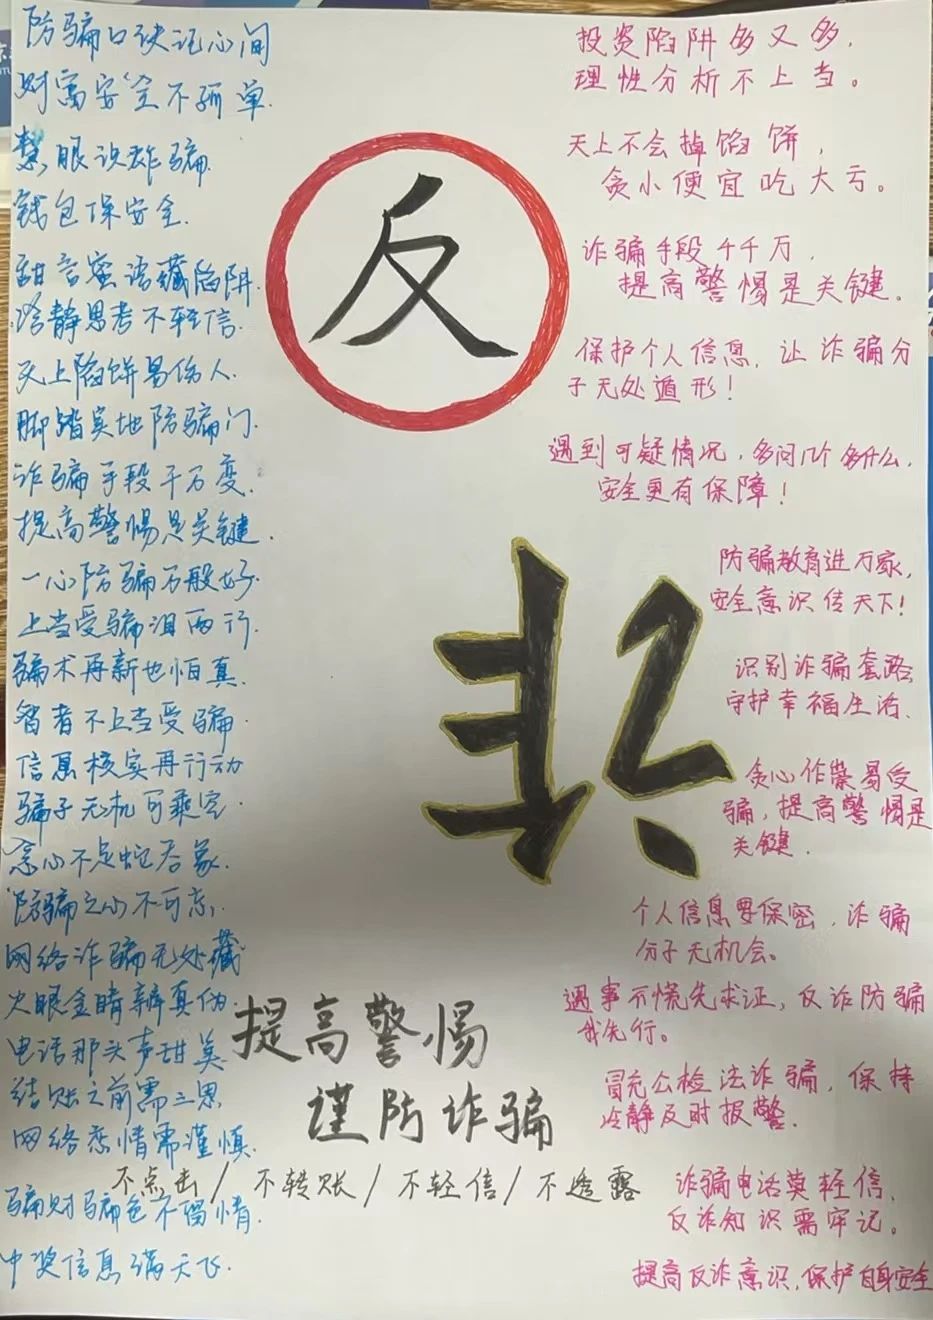 防骗口诀记心间
财富安全不孤单.
慧眼识诈骗.
钱包保安全.
甜言蜜语藏陷阱.
冷静思考不轻信.
天上陷饼易伤人.
脚踏实地防骗门.
诈骗手段千万变.
提高警惕是关键.
一心防骗万般好.
上当受骗泪两行.
骗术再新也怕真.
智者不上当受骗
信息核实再行动
骗子无机可乘它.
贪心不足蛇吞象.
防骗之心不可忘.
网络诈骗无处藏
火眼金睛辨真伪.
电话那头声甜美
结账之前需三思
网络恋情需谨慎.
骗财骗色不留情.
中奖信息满天飞.
反
诈
提高警惕
谨防诈骗
不点击/不转账/不轻信/不透露
投资陷阱多又多，
理性分析不上当。
天上不会掉馅饼，
贪小便宜吃大亏。
诈骗手段千千万，
提高警惕是关键。
保护个人信息，让诈骗分
子无处遁形！
遇到可疑情况，多问几个多什么，
安全更有保障！
防骗教育进万家，
安全意识传天下！
识别诈骗套路
守护幸福生活、
贪心作祟易受
骗，提高警惕是
关键.
个人信息要保密，诈骗
分子无机会。
遇事不慌先求证，反诈防骗
我先行。
冒充公检法诈骗，保持
冷静及时报警.
诈骗电话莫轻信，
反诈知识需牢记。
提高反诈意识，保护自身安全